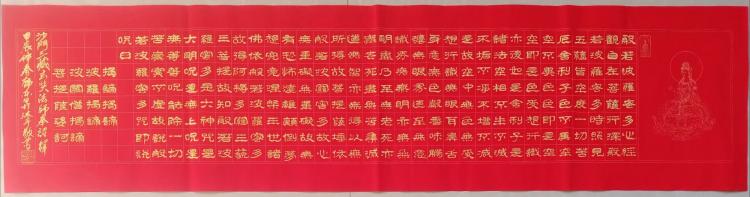 般若波羅蜜多心經
觀自在菩薩行深般
若波羅蜜多時照見
五蘊皆空度一切苦
厄舍利子色不異空
空不異色色即是空
空即是色受想行識
亦復如是舍利子是
諸法空相不生不滅
不垢不淨不增不減
是故空中無色無受
想行識無眼耳鼻舌
身意無色聲香味觸
法無眼界乃至無意
識界無無明亦無無
明盡乃至無老死亦
無老死盡無苦集滅
道無智亦無得以無
所得故菩提薩埵依
般若波羅蜜多故心
無罣礙無罣礙故無
有恐怖遠離顛倒夢
想究竟涅槃三世諸
佛依般若波羅蜜多
故得阿耨多羅三藐
三菩提故知般若波
羅蜜多是大神咒是
大明咒是無上咒是
無等等咒能除一切
苦真實不虛故說般
若波羅蜜多咒即說
咒曰
揭諦揭諦
波羅揭諦
波羅僧揭諦
菩提薩婆訶
沙門三藏玄奘法師奉詔譯
甲辰仲春 敬書